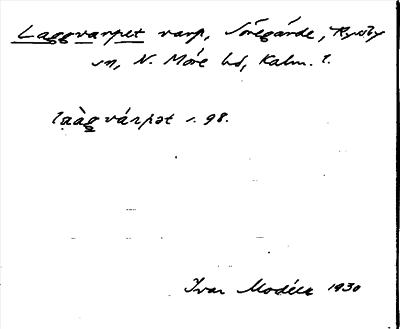 Laggvarpet varp, Söregärde, Ryssby
sn, N. Möre hd, Kalm. l.
la̱àg̱várpət s. 98.
Ivar Modéer 1930